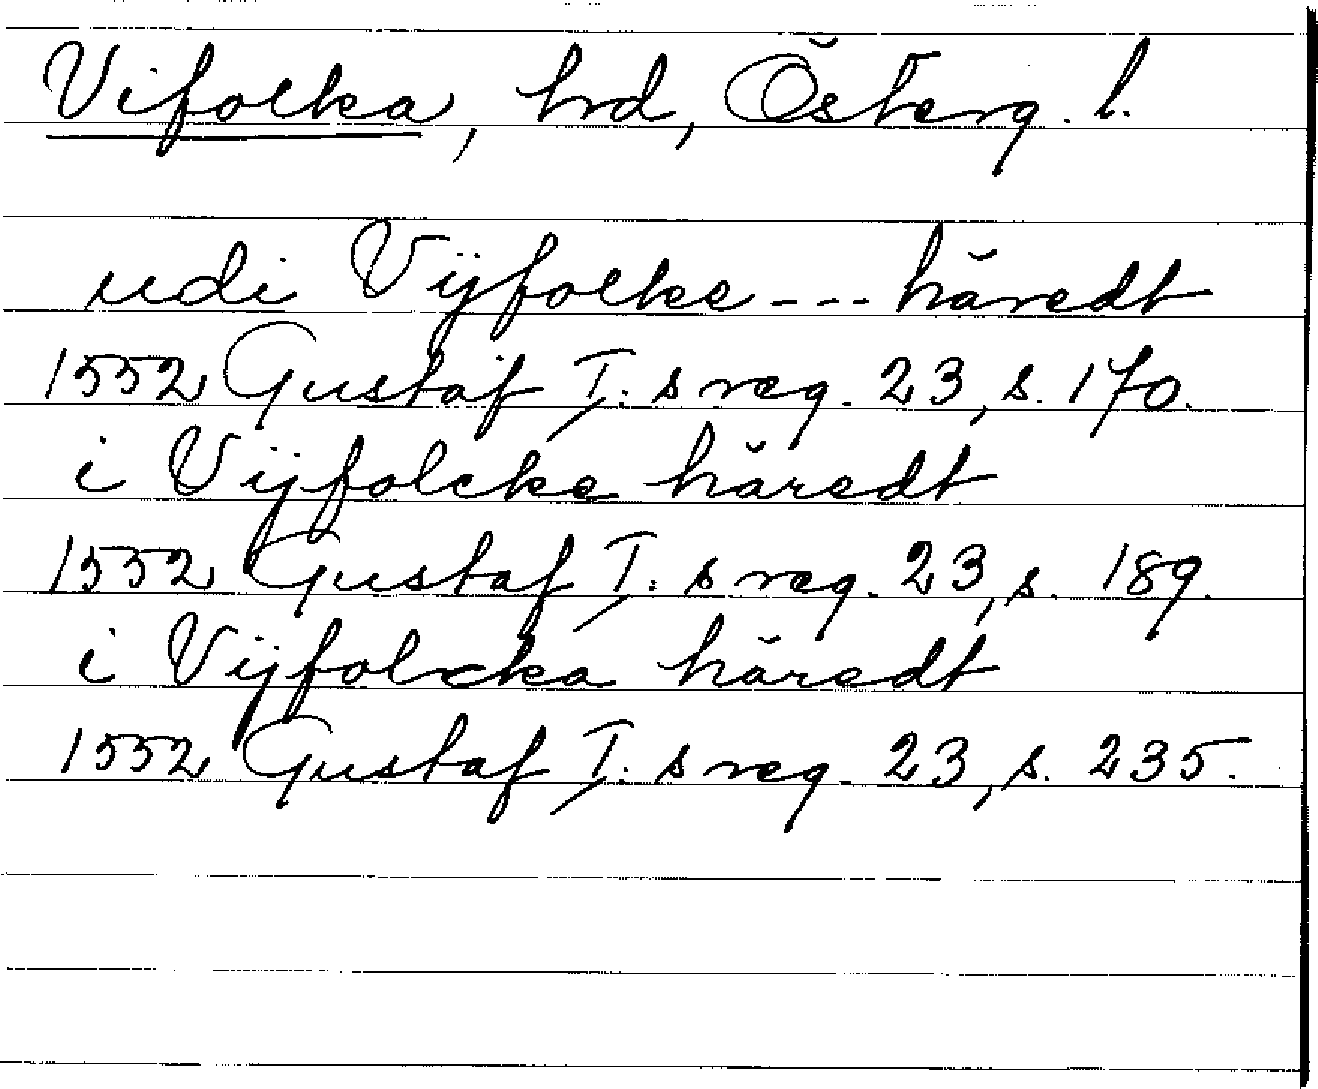 Vifolka, hrd, Österg. l.
udi Vijfolke --- häredt
1552 Gustaf I:s reg. 23, s. 170.
i Vijfolcke häredt
1552 Gustaf I:s reg. 23, s. 189.
i Vijfolcka häredt
1552 Gustaf I:s reg. 23, s. 235.